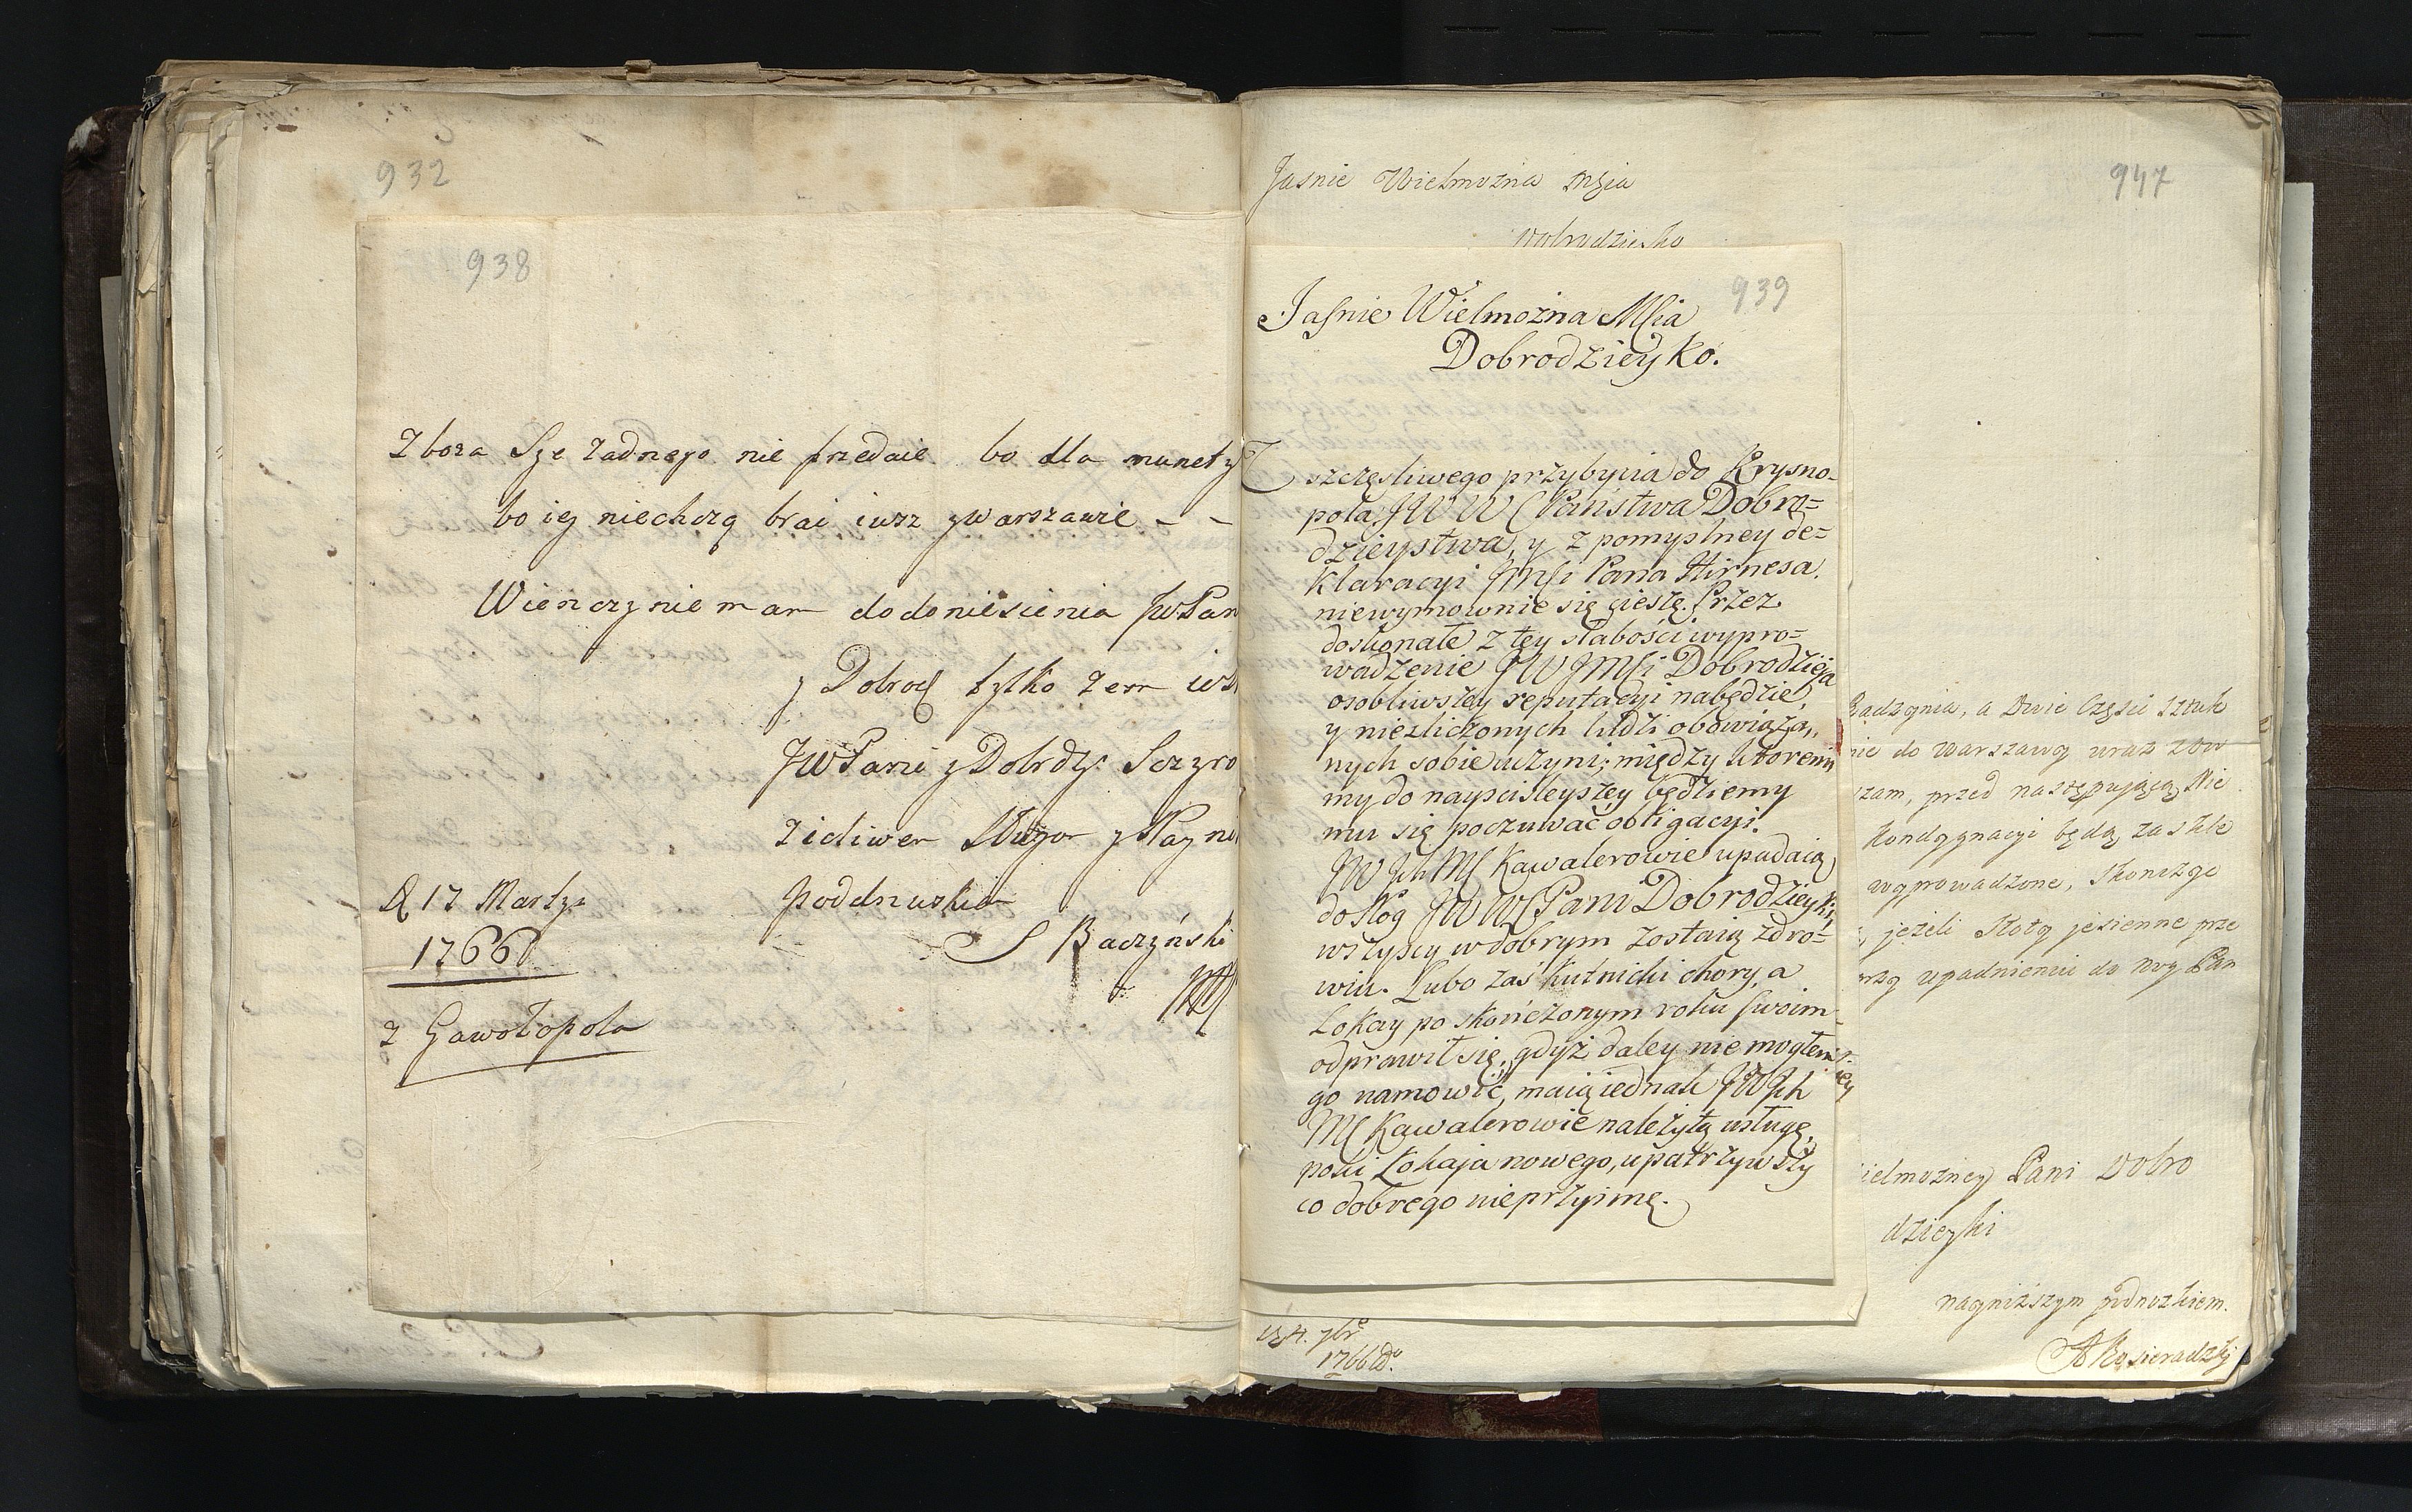 932
938
Zboza Sze zadnego nie przedaie bo dla munety
bo iey niechczą brai iusz zwarszawie - -
Wienczy nie mam do doniesienia JWPan
y Dobrod tylko zem
JWPani y Dobrdz: Sczyro
Sługa y Nay
podnuszkiem
S Baczyński
D 17 Marty:
1766
z Gawołopola
947
Jasnie Wielmozna Msia
Dobrodzieyko
939
Jaśnie Wielmożna Mśia
Dobrodzieyko.
Z szczęsliwego przybycia do Krysno-
pola JWW Państwa Dobro=
dzieystwa, y z pomyslney de=
klaracyi JMśi Pana Hirnesa.
niewymownie się cieszę. Przez
doskonałe z tey słabości wypro=
wadzenie JWJMśi Dobrodzieja
osobliwszey reputacyi nabędzie,
y niezliczonych ludzi obowiąza,,
nych sobie uczyni; między ktoremi
my do nayscisleyszey będziemy
mu się poczuwać obligacyi.
JW Jch MC Kawalerowie upadaią
do Nóg JWWC Pani Dobrodzieyki,
wszyscy w dobrym zostaią zdro=
wiu. Lubo zaś Kutnicki chory, a
Lokay po skończonym roku swoim
odprawił się, gdyż daley nie mogłem
go namowić, maią iednak JWJch
MC Kawalerowie należytą usługę,
poki Lokaja nowego, upatrzywszy
co dobrego nieprzyimę.
Radzynia, a Dwie Części Sztuk
nie do Warszawy wraz zow
szam, przed następującą Nie
Kondygnacyi będą zaskle
wyprowadzone, Skonczge
jeżeli Słoty jesienne prze
upadnieniu do nog Pan
ielmozney Pani Dobro
dzieyki
nayniższym podnozkiem.
A Kosieradzky
14. 7br
1766